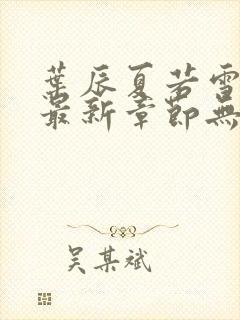 葉辰夏若雪
最新章節無
吳某斌